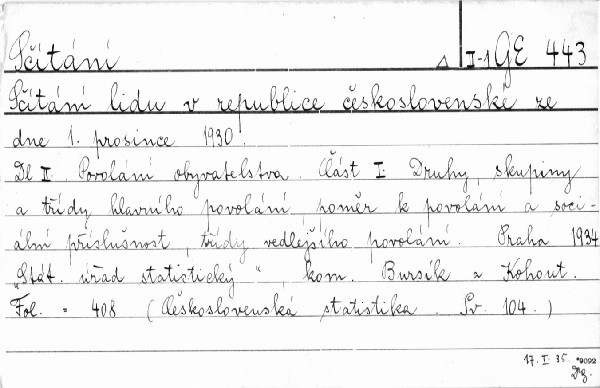 Sčítání △ I-1 GE 443
Sčítání lidu v republice československé ze
dne 1. prosince 1930.
Dl II. Povolání obyvatelstva. Část I. Druhy, skupiny
a třídy hlavního povolání, poměr k povolání a soci-
ální příslušnost, třídy vedlejšího povolání. Praha 1934
„Stát. úřad statistický“, kom. Bursík a Kohout.
Fol. = 408 (Československá statistika. Sv. 104.)
17. I. 35. *9092